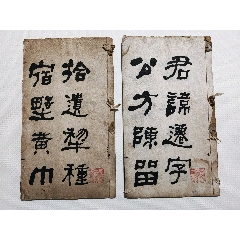 君諱遷字
公方陳留
拾遺犁種
宿野黃巾